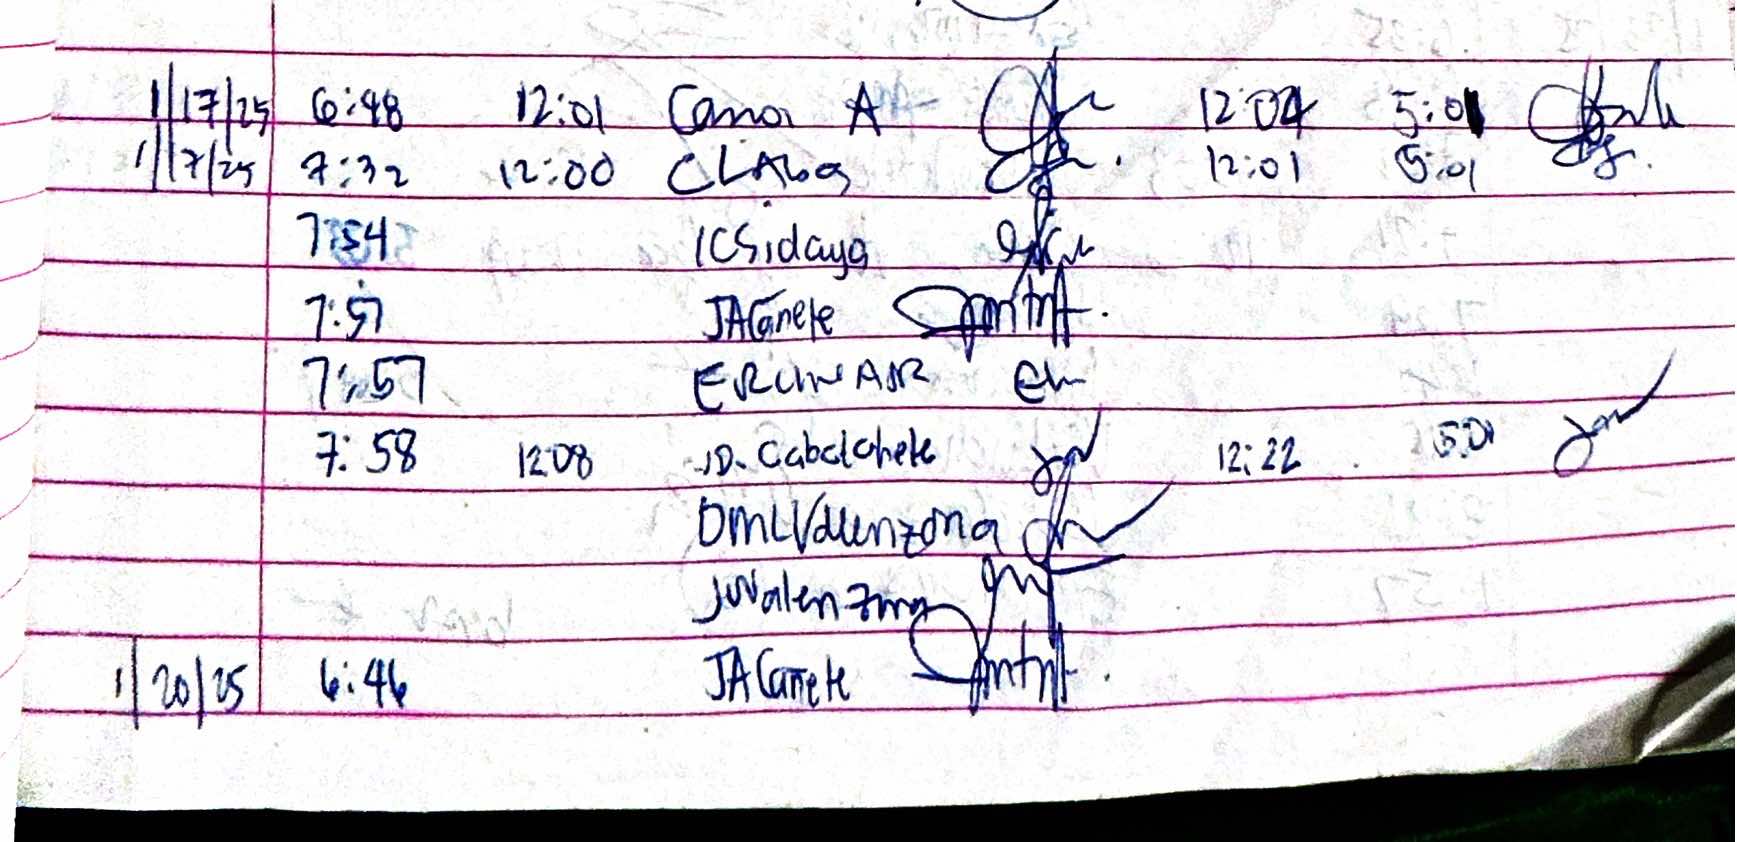 1/17/25 6:48 12:01 Canoi A 12:04 5:01
1/17/25 7:32 12:00 CLAbas 12:01 5:01
7:54 ICSidaya
7:57 JACañete
7:57 ERLINAJR
7:58 12:08 JD. Cabalchete 12:22 5:01
DMLValenzona
JVValenzona
1/20/25 6:46 JACañete